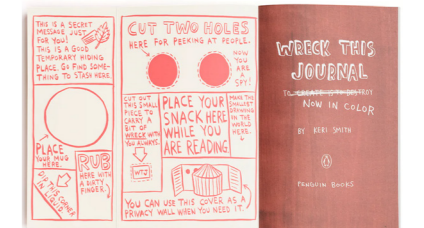 THIS IS A SECRET
MESSAGE JUST
FOR YOU!
THIS IS A GOOD
TEMPORARY HIDING
PLACE. GO FIND SOME-
THING TO STASH HERE.
PLACE
YOUR MUG
HERE.
RUB
HERE WITH
A DIRTY
FINGER.
DIP THIS CORNER
IN LIQUID.
CUT TWO HOLES
HERE FOR PEEKING AT PEOPLE.
NOW
YOU
ARE A
SPY!
CUT OUT
THIS SMALL
PIECE TO
CARRY A
BIT OF
WRECK WITH
YOU ALWAYS.
WTJ
PLACE YOUR
SNACK HERE
WHILE YOU
ARE READING
MAKE THE
SMALLEST
DRAWING
IN THE
WORLD
HERE.
YOU CAN USE THIS COVER AS A
PRIVACY WALL WHEN YOU NEED IT.
WRECK THIS
JOURNAL
TO CREATE IS TO DESTROY
NOW IN COLOR
BY KERI SMITH
PENGUIN BOOKS